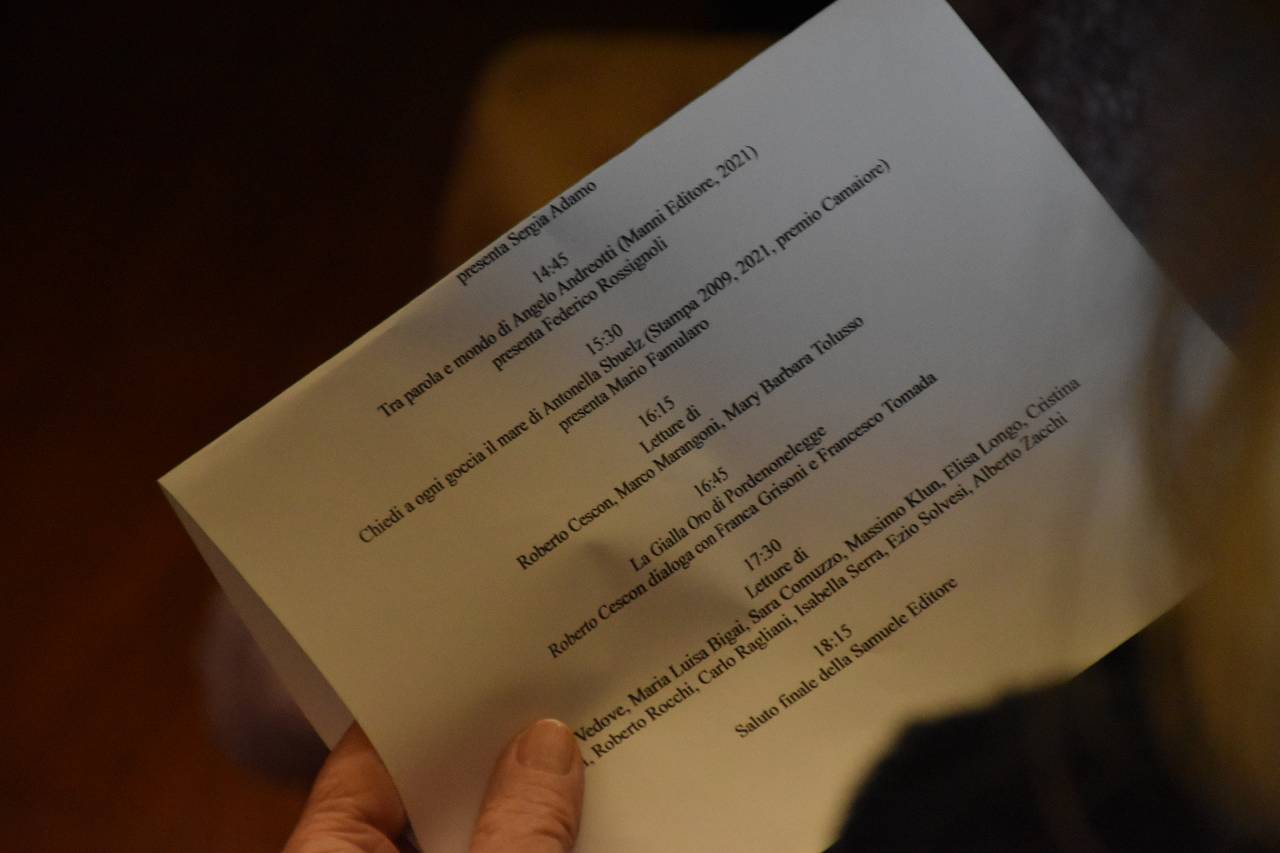 presenta Sergia Adamo
14:45
Tra parola e mondo di Angelo Andreotti (Manni Editore, 2021)
presenta Federico Rossignoli
15:30
Chiedi a ogni goccia il mare di Antonella Sbuelz (Stampa 2009, 2021, premio Camaiore)
presenta Mario Famularo
16:15
Letture di
Roberto Cescon, Marco Marangoni, Mary Barbara Tolusso
16:45
La Gialla Oro di Pordenonelegge
Roberto Cescon dialoga con Franca Grisoni e Francesco Tomada
17:30
Letture di
Vedove, Maria Luisa Bigai, Sara Comuzzo, Massimo Klun, Elisa Longo, Cristina
, Roberto Rocchi, Carlo Ragliani, Isabella Serra, Ezio Solvesi, Alberto Zacchi
18:15
Saluto finale della Samuele Editore